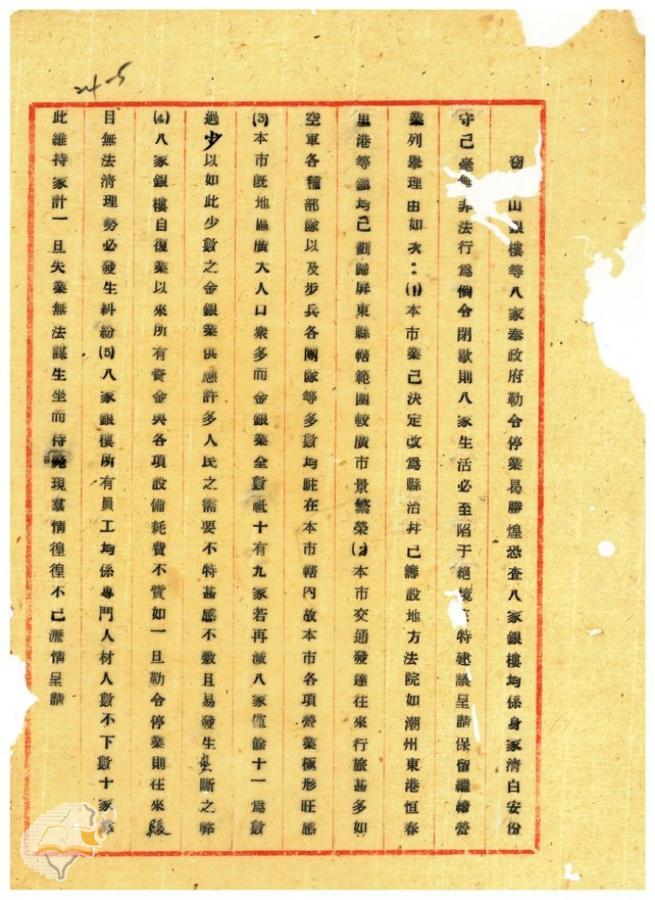 24-5
竊山銀樓等八家奉政府勒令停業曷勝惶恐查八家銀樓均係身家清白安份
守己毫無非法行爲倘令閉歇則八家生活必至陷于絕境特建議呈請保留繼續營
業列舉理由如次：(1)本市業已決定改爲縣治幷已籌設地方法院如潮州東港恒春
里港等鎮均已劃歸屏東縣轄範圍較廣市景繁榮(2)本市交通發達往來行旅甚多如
空軍各種部隊以及步兵各團隊等多數均駐在本市轄內故本市各項營業極形旺盛
(3)本市既地區廣大人口衆多而金銀業全數祗十有九家若再減八家僅餘十一爲數
過少以如此少數之金銀業供應許多人民之需要不特甚感不敷且易發生壟斷之弊
(4)八家銀樓自復業以來所有資金與各項設備耗費不貲如一旦勒令停業則往來賬
目無法清理勢必發生糾紛(5)八家銀樓所有員工均係專門人材人數不下數十家
此維持家計一旦失業無法謀生坐而待斃現羣情徨徨不已瀝情呈請